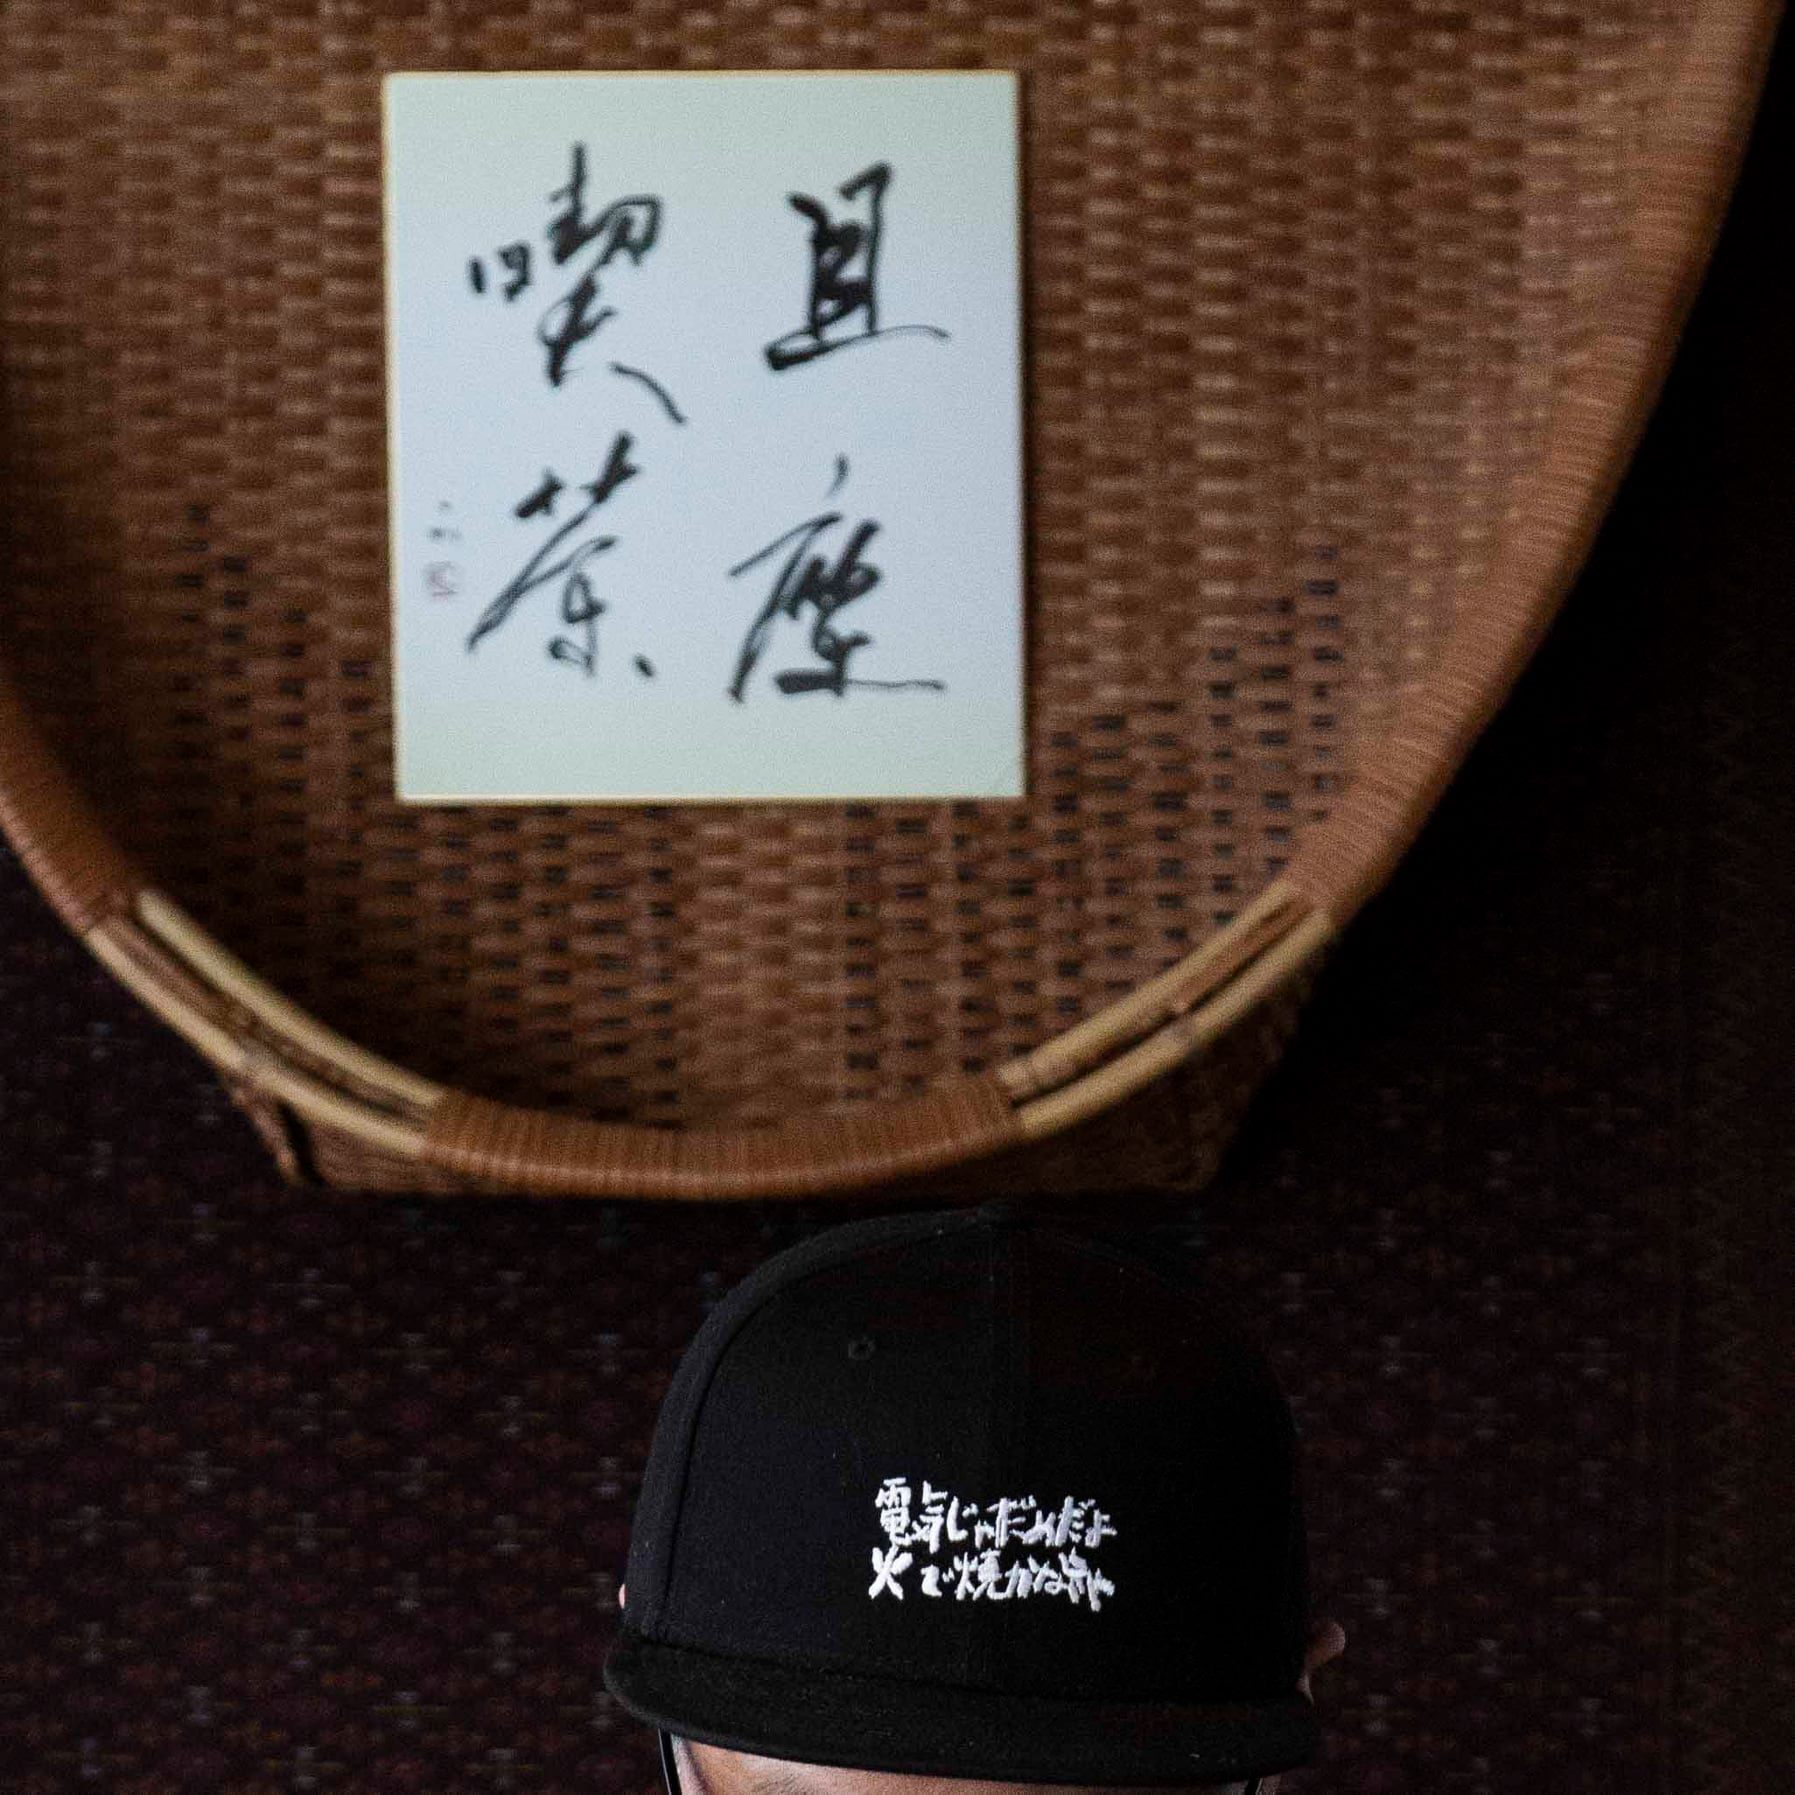 且座
喫茶
電気じゃだめだよ
火で焼かなきゃ